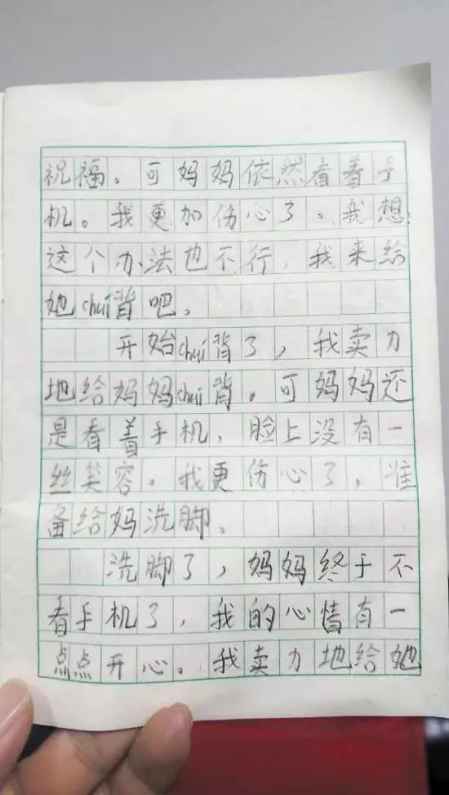 祝福。可妈妈依然看着手
机。我更加伤心了。我想
这个办法也不行，我来给
她chuí背吧。
开始chuí背了，我卖力
地给妈妈chuí背。可妈妈还
是看着手机，脸上没有一
丝笑容。我更伤心了。准
备给妈洗脚。
洗脚了，妈妈终于不
看手机了，我的心情有一
点点开心。我卖力地给她